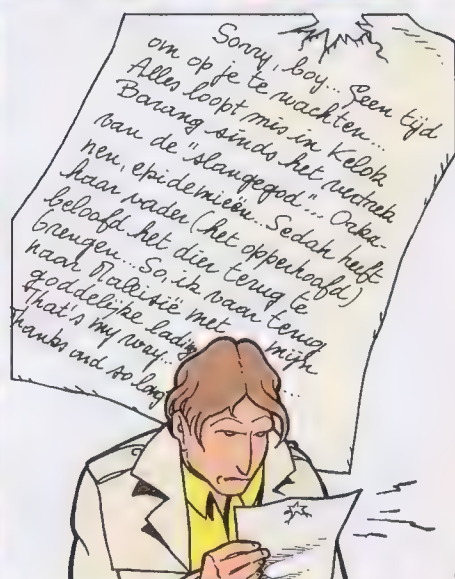 Sorry, boy... Geen tijd
om op je te wachten...
Alles loopt mis in Kelok
Barang sinds het vertrek
van de "slangegod"... Orka-
nen, epidemieën... Sedah heeft
haar vader (het opperhoofd)
beloofd het dier terug te
brengen... So, ik vaar terug
naar Maleisië met mijn
goddelijke lady...
That's my way...
Thanks and so long